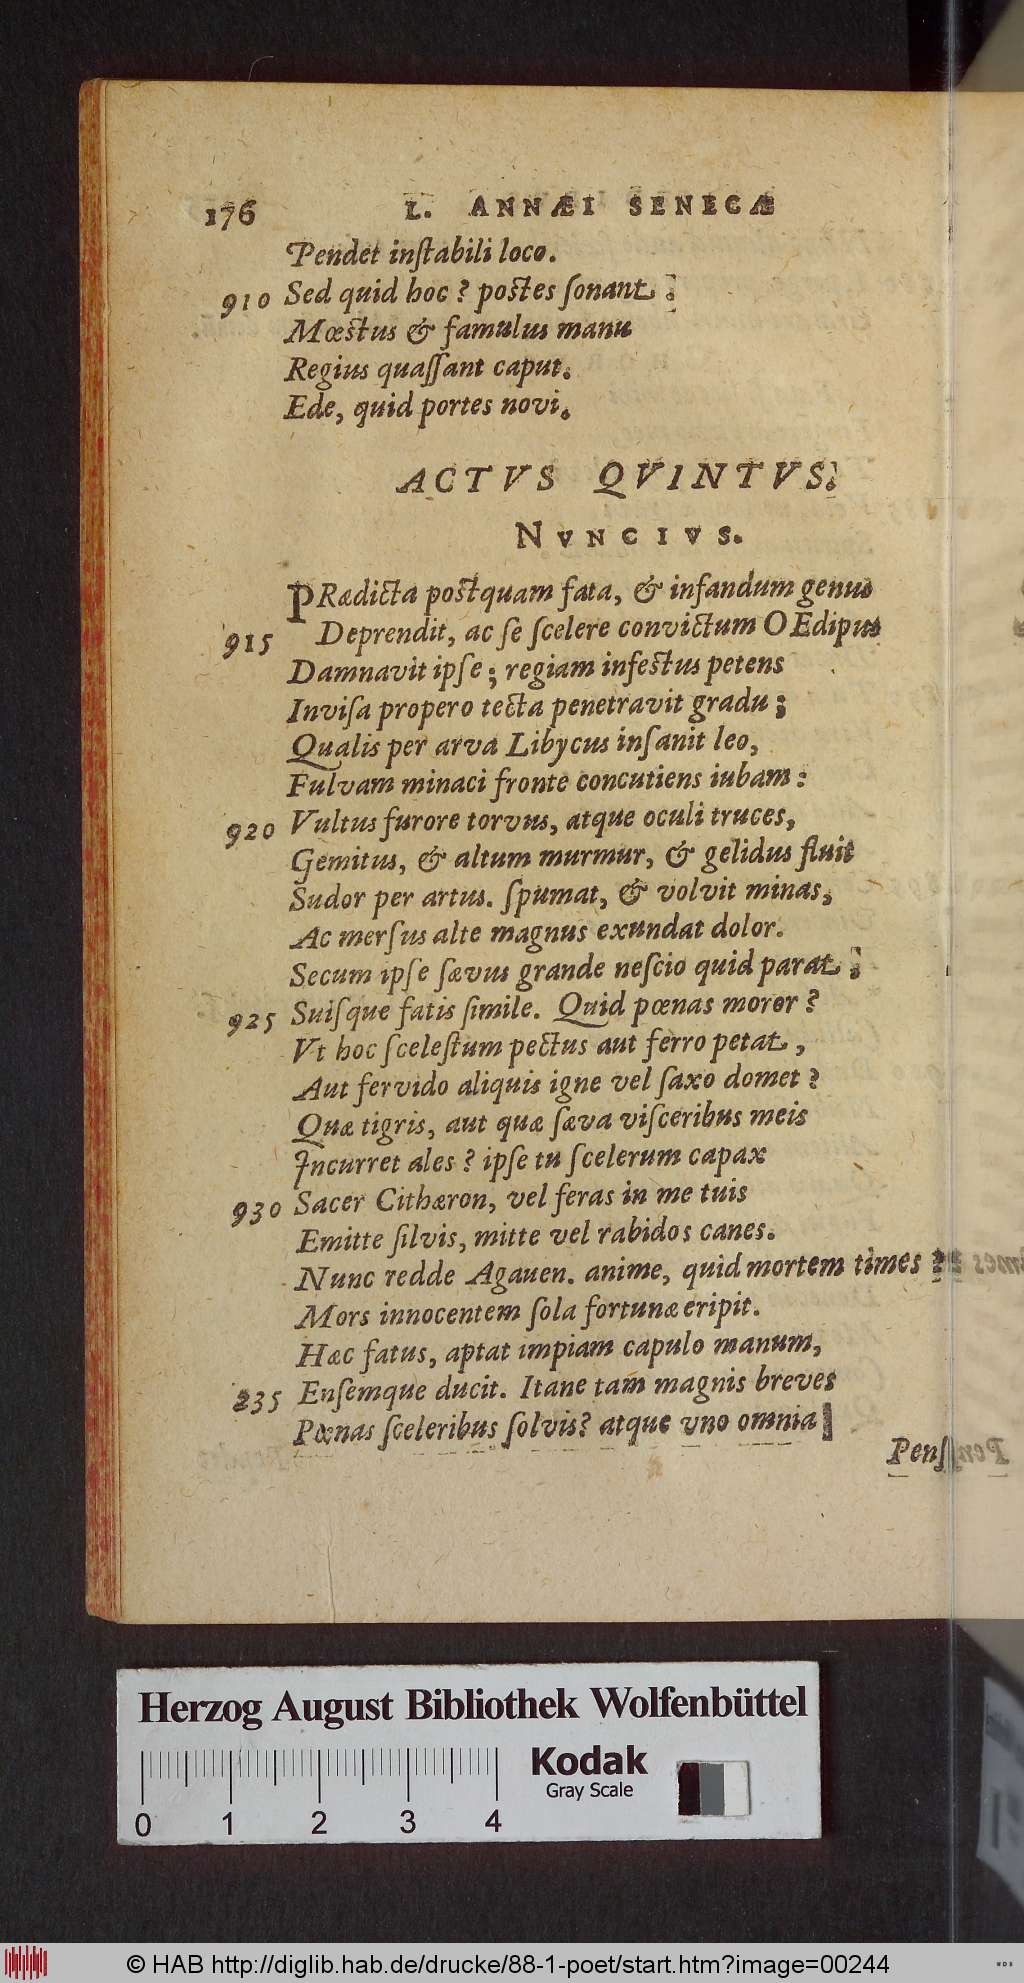 176 L. ANNÆI SENECÆ
Pendet inſtabili loco.
910 Sed quid hoc? poſtes ſonant;
Mœſtus & famulus manu
Regius quaſſant caput.
Ede, quid portes novi.
ACTVS QVINTVS.
NVNCIVS.
PRædicta poſtquam fata, & infandum genus
915 Deprendit, ac ſe ſcelere convictum OEdipus
Damnavit ipſe; regiam infeſtus petens
Inviſa propero tecta penetravit gradu;
Qualis per arva Libycus inſanit leo,
Fulvam minaci fronte concutiens iubam:
920 Vultus furore torvus, atque oculi truces,
Gemitus, & altum murmur, & gelidus fluit
Sudor per artus. ſpumat, & volvit minas,
Ac merſus alte magnus exundat dolor.
Secum ipſe ſævus grande neſcio quid parat;
925 Suiſque fatis ſimile. Quid pœnas moror?
Vt hoc ſceleſtum pectus aut ferro petat,
Aut fervido aliquis igne vel ſaxo domet?
Quæ tigris, aut quæ ſæva viſceribus meis
Incurret ales? ipſe tu ſcelerum capax
930 Sacer Cithæron, vel feras in me tuis
Emitte ſilvis, mitte vel rabidos canes.
Nunc redde Agauen. anime, quid mortem times?
Mors innocentem ſola fortunæ eripit.
Hæc fatus, aptat impiam capulo manum,
235 Enſemque ducit. Itane tam magnis breves
Pœnas ſceleribus ſolvis? atque uno omnia
Penſ
Herzog August Bibliothek Wolfenbüttel
Kodak
Gray Scale
0 1 2 3 4
© HAB http://diglib.hab.de/drucke/88-1-poet/start.htm?image=00244